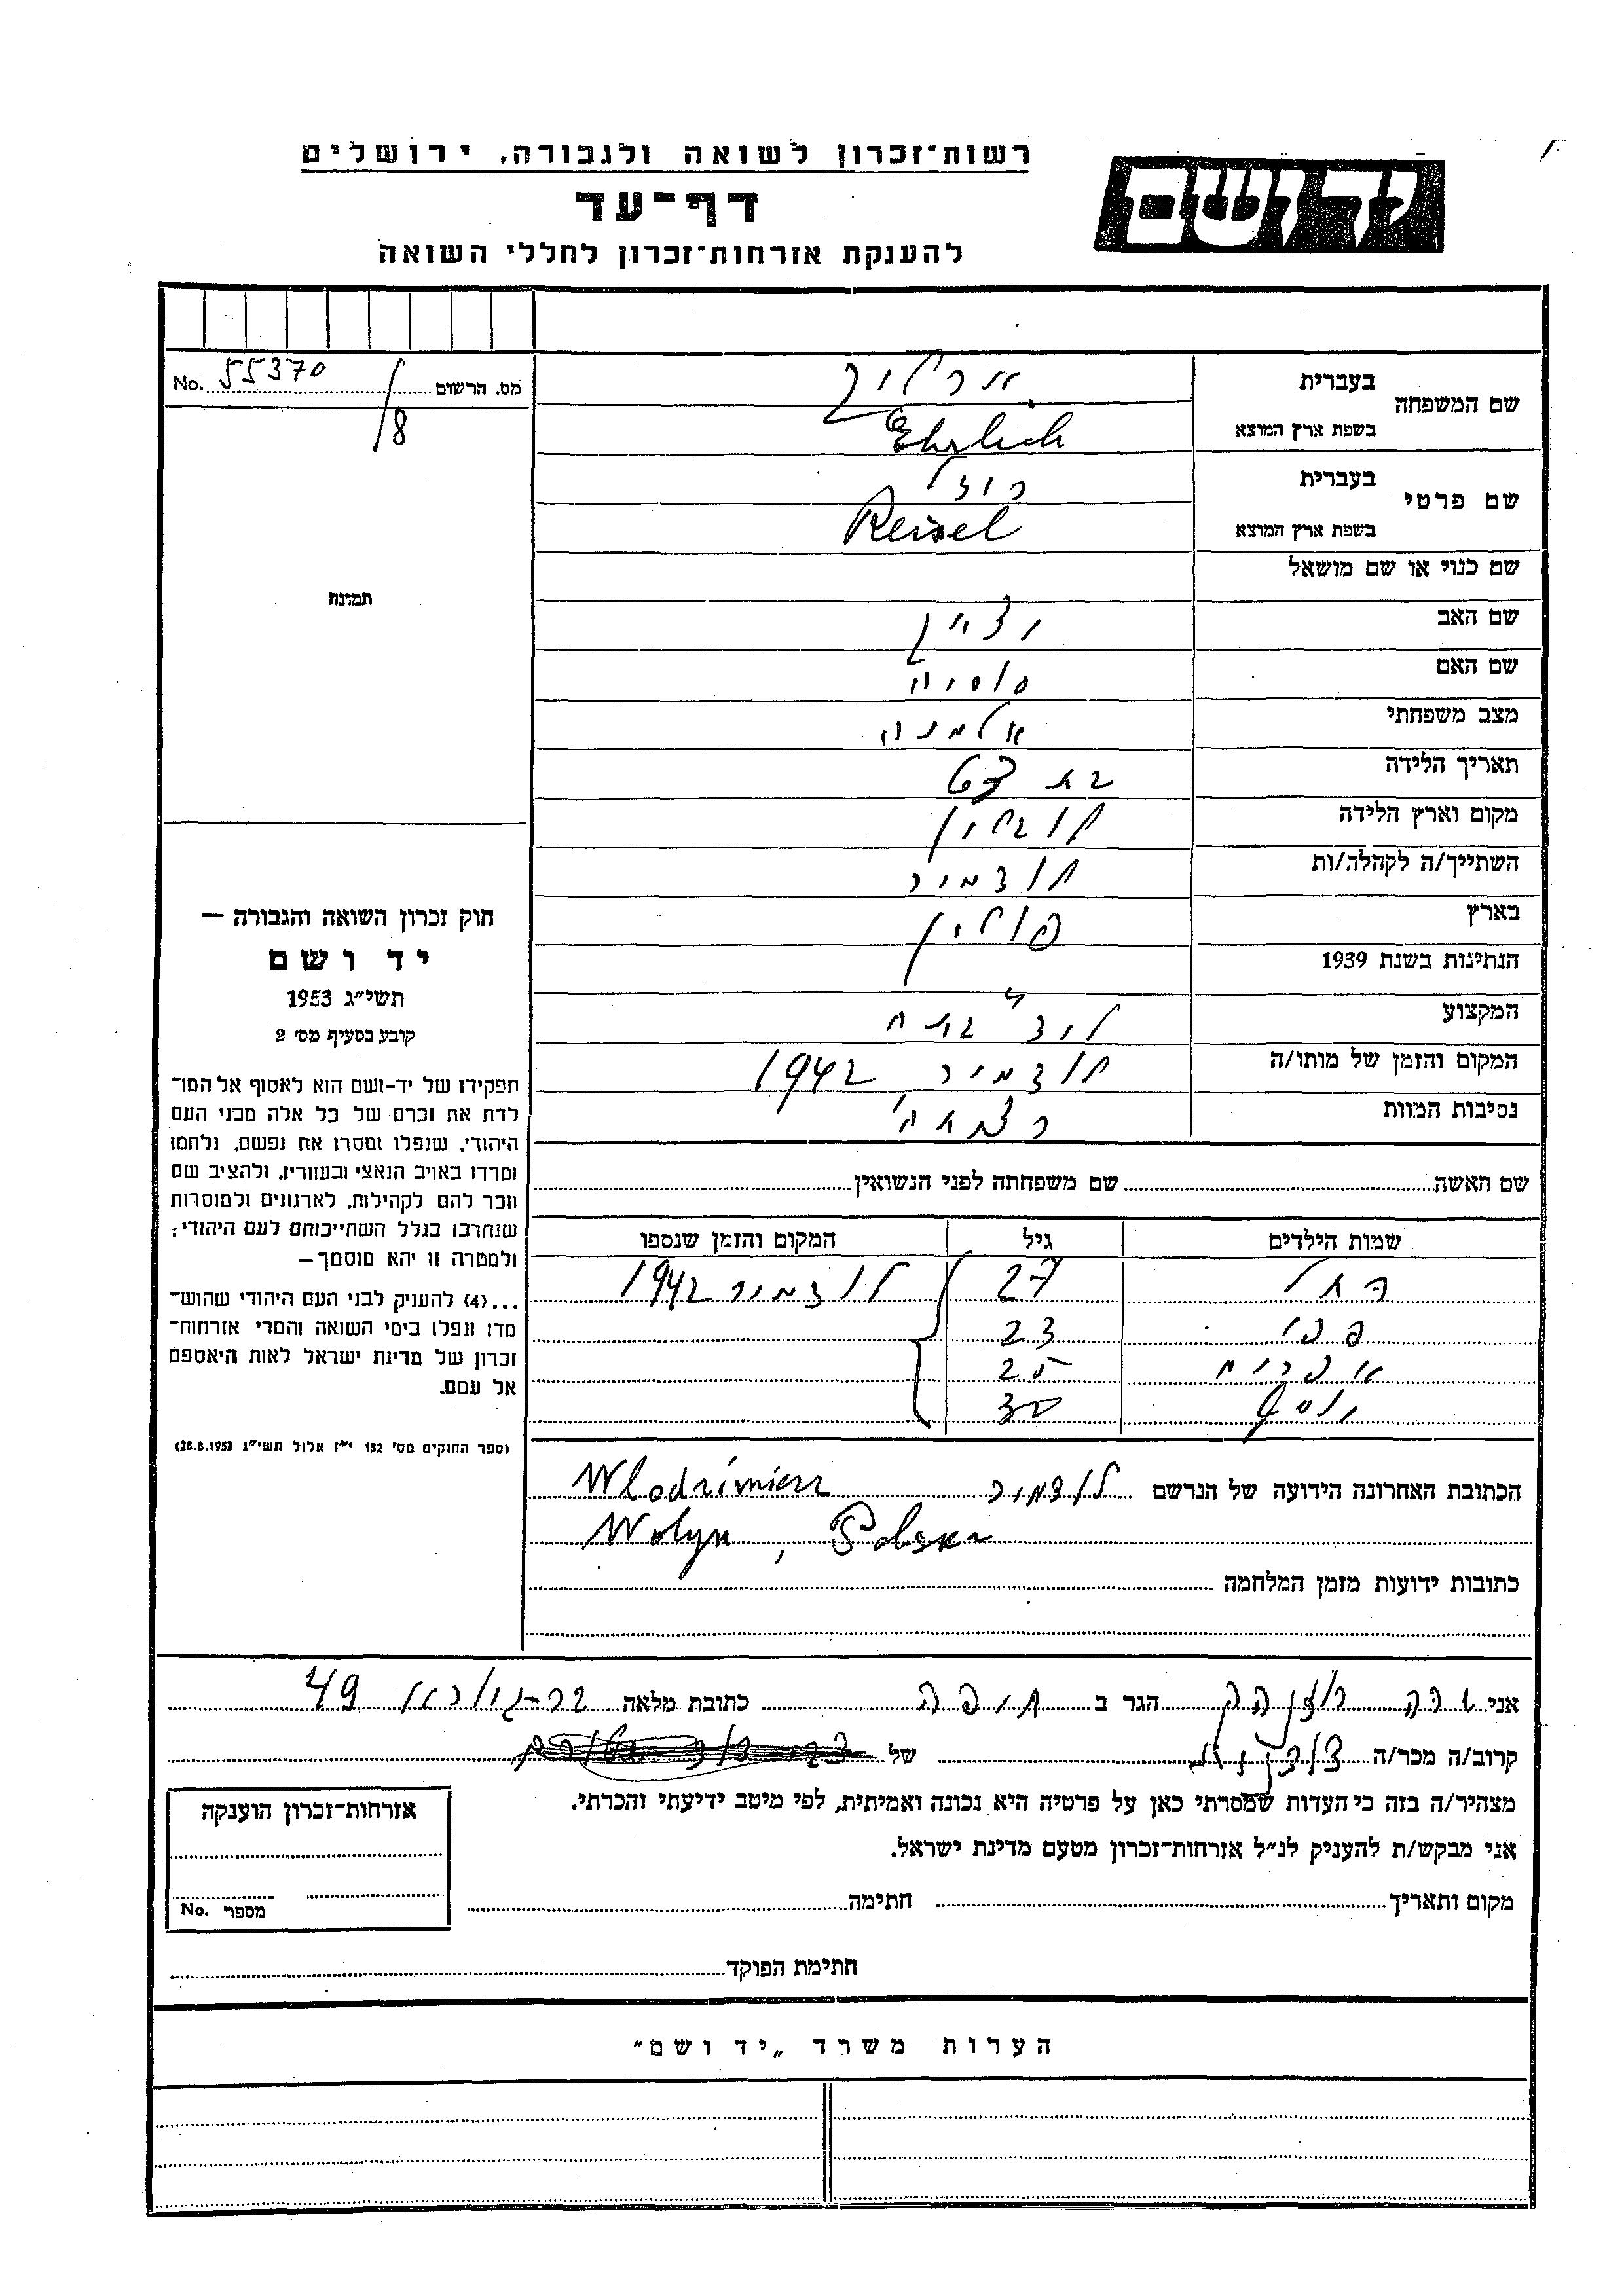 רשות־זכרון לשואה ולגבורה, ירושלים
יד ושם
דף־עד
להענקת אזרחות־זכרון לחללי השואה
מס. הרשום 55370 No.
/8
שם המשפחה
בעברית
ארליך
בשפת ארץ המוצא
Ehrlich
שם פרטי
בעברית
רוזל
בשפת ארץ המוצא
Reisel
שם כנוי או שם מושאל
שם האב
שם האם
מצב משפחתי אלמנה
תאריך הלידה בת 63
מקום וארץ הלידה
השתייך/ה לקהלה/ות
בארץ פולין
הנתינות בשנת 1939
המקצוע
המקום והזמן של מותו/ה 1942
נסיבות המוות נרצחה
תמונה
שם האשה שם משפחתה לפני הנשואין
שמות הילדים גיל המקום והזמן שנספו
רחל 27 לודמיר 1942
23
אפרים 25
יוסף 30
הכתובת האחרונה הידועה של הנרשם לודמיר Wlodzimierz
Wolyn, Polska
כתובות ידועות מזמן המלחמה
חוק זכרון השואה והגבורה —
יד ושם
תשי״ג 1953
קובע בסעיף מס׳ 2
תפקידו של יד-ושם הוא לאסוף אל המו־
לדת את זכרם של כל אלה מבני העם
היהודי, שנפלו ומסרו את נפשם, נלחמו
ומרדו באויב הנאצי ובעוזריו, ולהציב שם
וזכר להם לקהילות, לארגונים ולמוסדות
שנחרבו בגלל השתייכותם לעם היהודי;
ולמטרה זו יהא מוסמך—
...(4) להעניק לבני העם היהודי שהוש־
מדו ונפלו בימי השואה והמרי אזרחות־
זכרון של מדינת ישראל לאות היאספם
אל עמם.
(ספר החוקים מס׳ 132 י״ז אלול תשי״ג 28.8.1953)
אני שרה הגר ב חיפה כתובת מלאה 49
קרוב/ה מכר/ה של
מצהיר/ה בזה כי העדות שמסרתי כאן על פרטיה היא נכונה ואמיתית, לפי מיטב ידיעתי והכרתי.
אני מבקש/ת להעניק לנ״ל אזרחות־זכרון מטעם מדינת ישראל.
מקום ותאריך חתימה
חתימת הפוקד
אזרחות־זכרון הוענקה
מספר No.
הערות משרד „יד ושם״